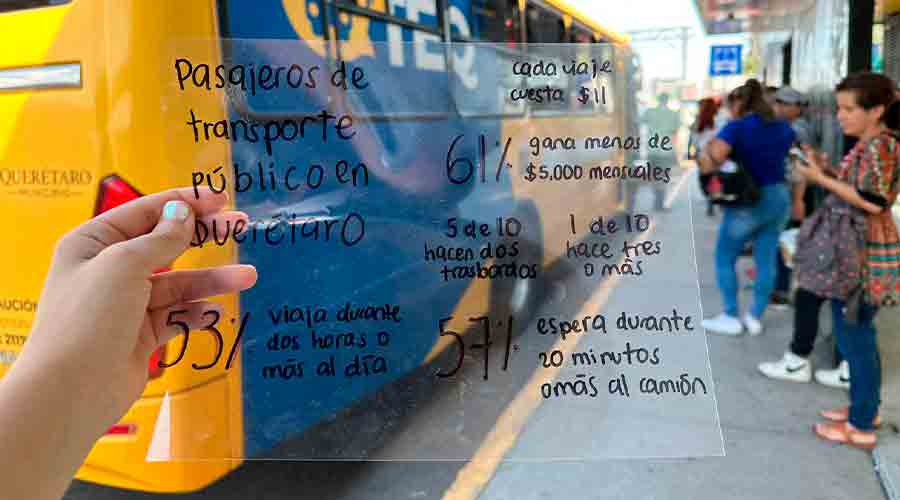 Pasajeros de
transporte
público en
Querétaro
cada viaje
cuesta $11
61% gana menos de
$5,000 mensuales
5 de 10
hacen dos
trasbordos
1 de 10
hace tres
o más
53% viaja durante
dos horas o
más al día
57% espera durante
20 minutos
o más al camión
QUERÉTARO
TEQ